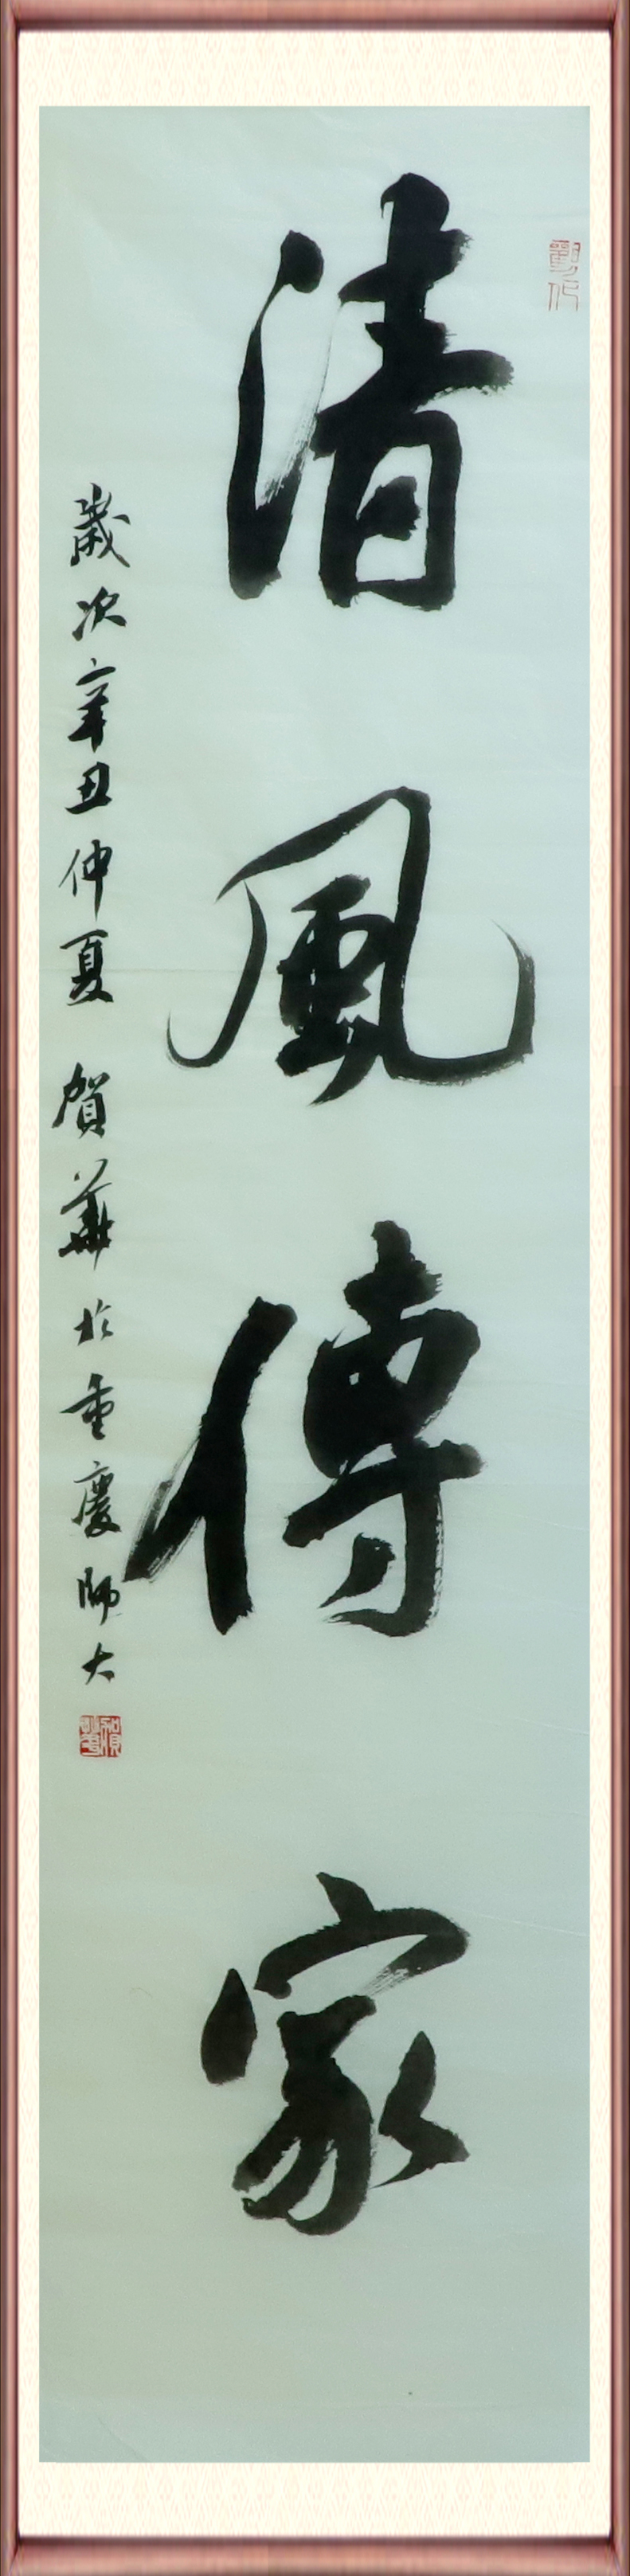 清風傳家
歲次辛丑仲夏 賀華於重慶師大